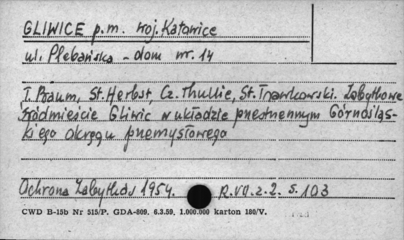 GLIWICE p.m. woj. Katowice
ul. Plebańska - dom nr. 14
T. Praum, St. Herbst, Cz. Thullie, St. Trawkowski. Zabytkowe
śródmieście Gliwic w układzie przestrzennym Górnośląs-
kiego okręgu przemysłowego
Ochrona Zabytków 1954. R.VII. z. 2. s. 103
CWD B-15b Nr 515/P. GDA-809. 6.3.59. 1.000.000 karton 180/V.